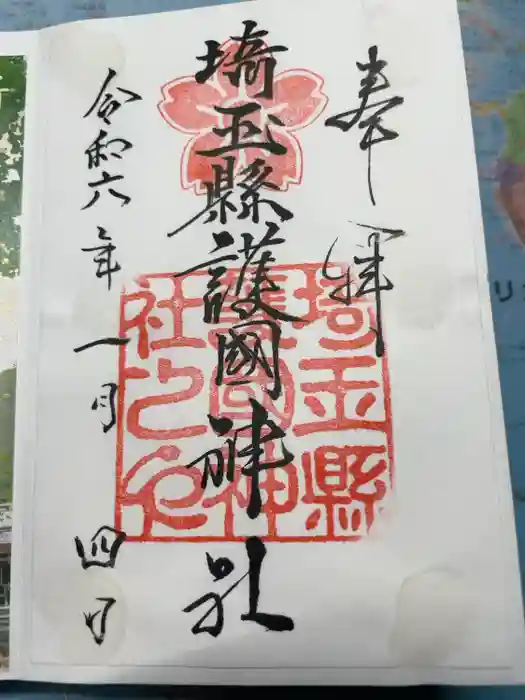 奉拝
埼玉縣護國神社
埼玉縣護國神社之印
令和六年一月四日
リ